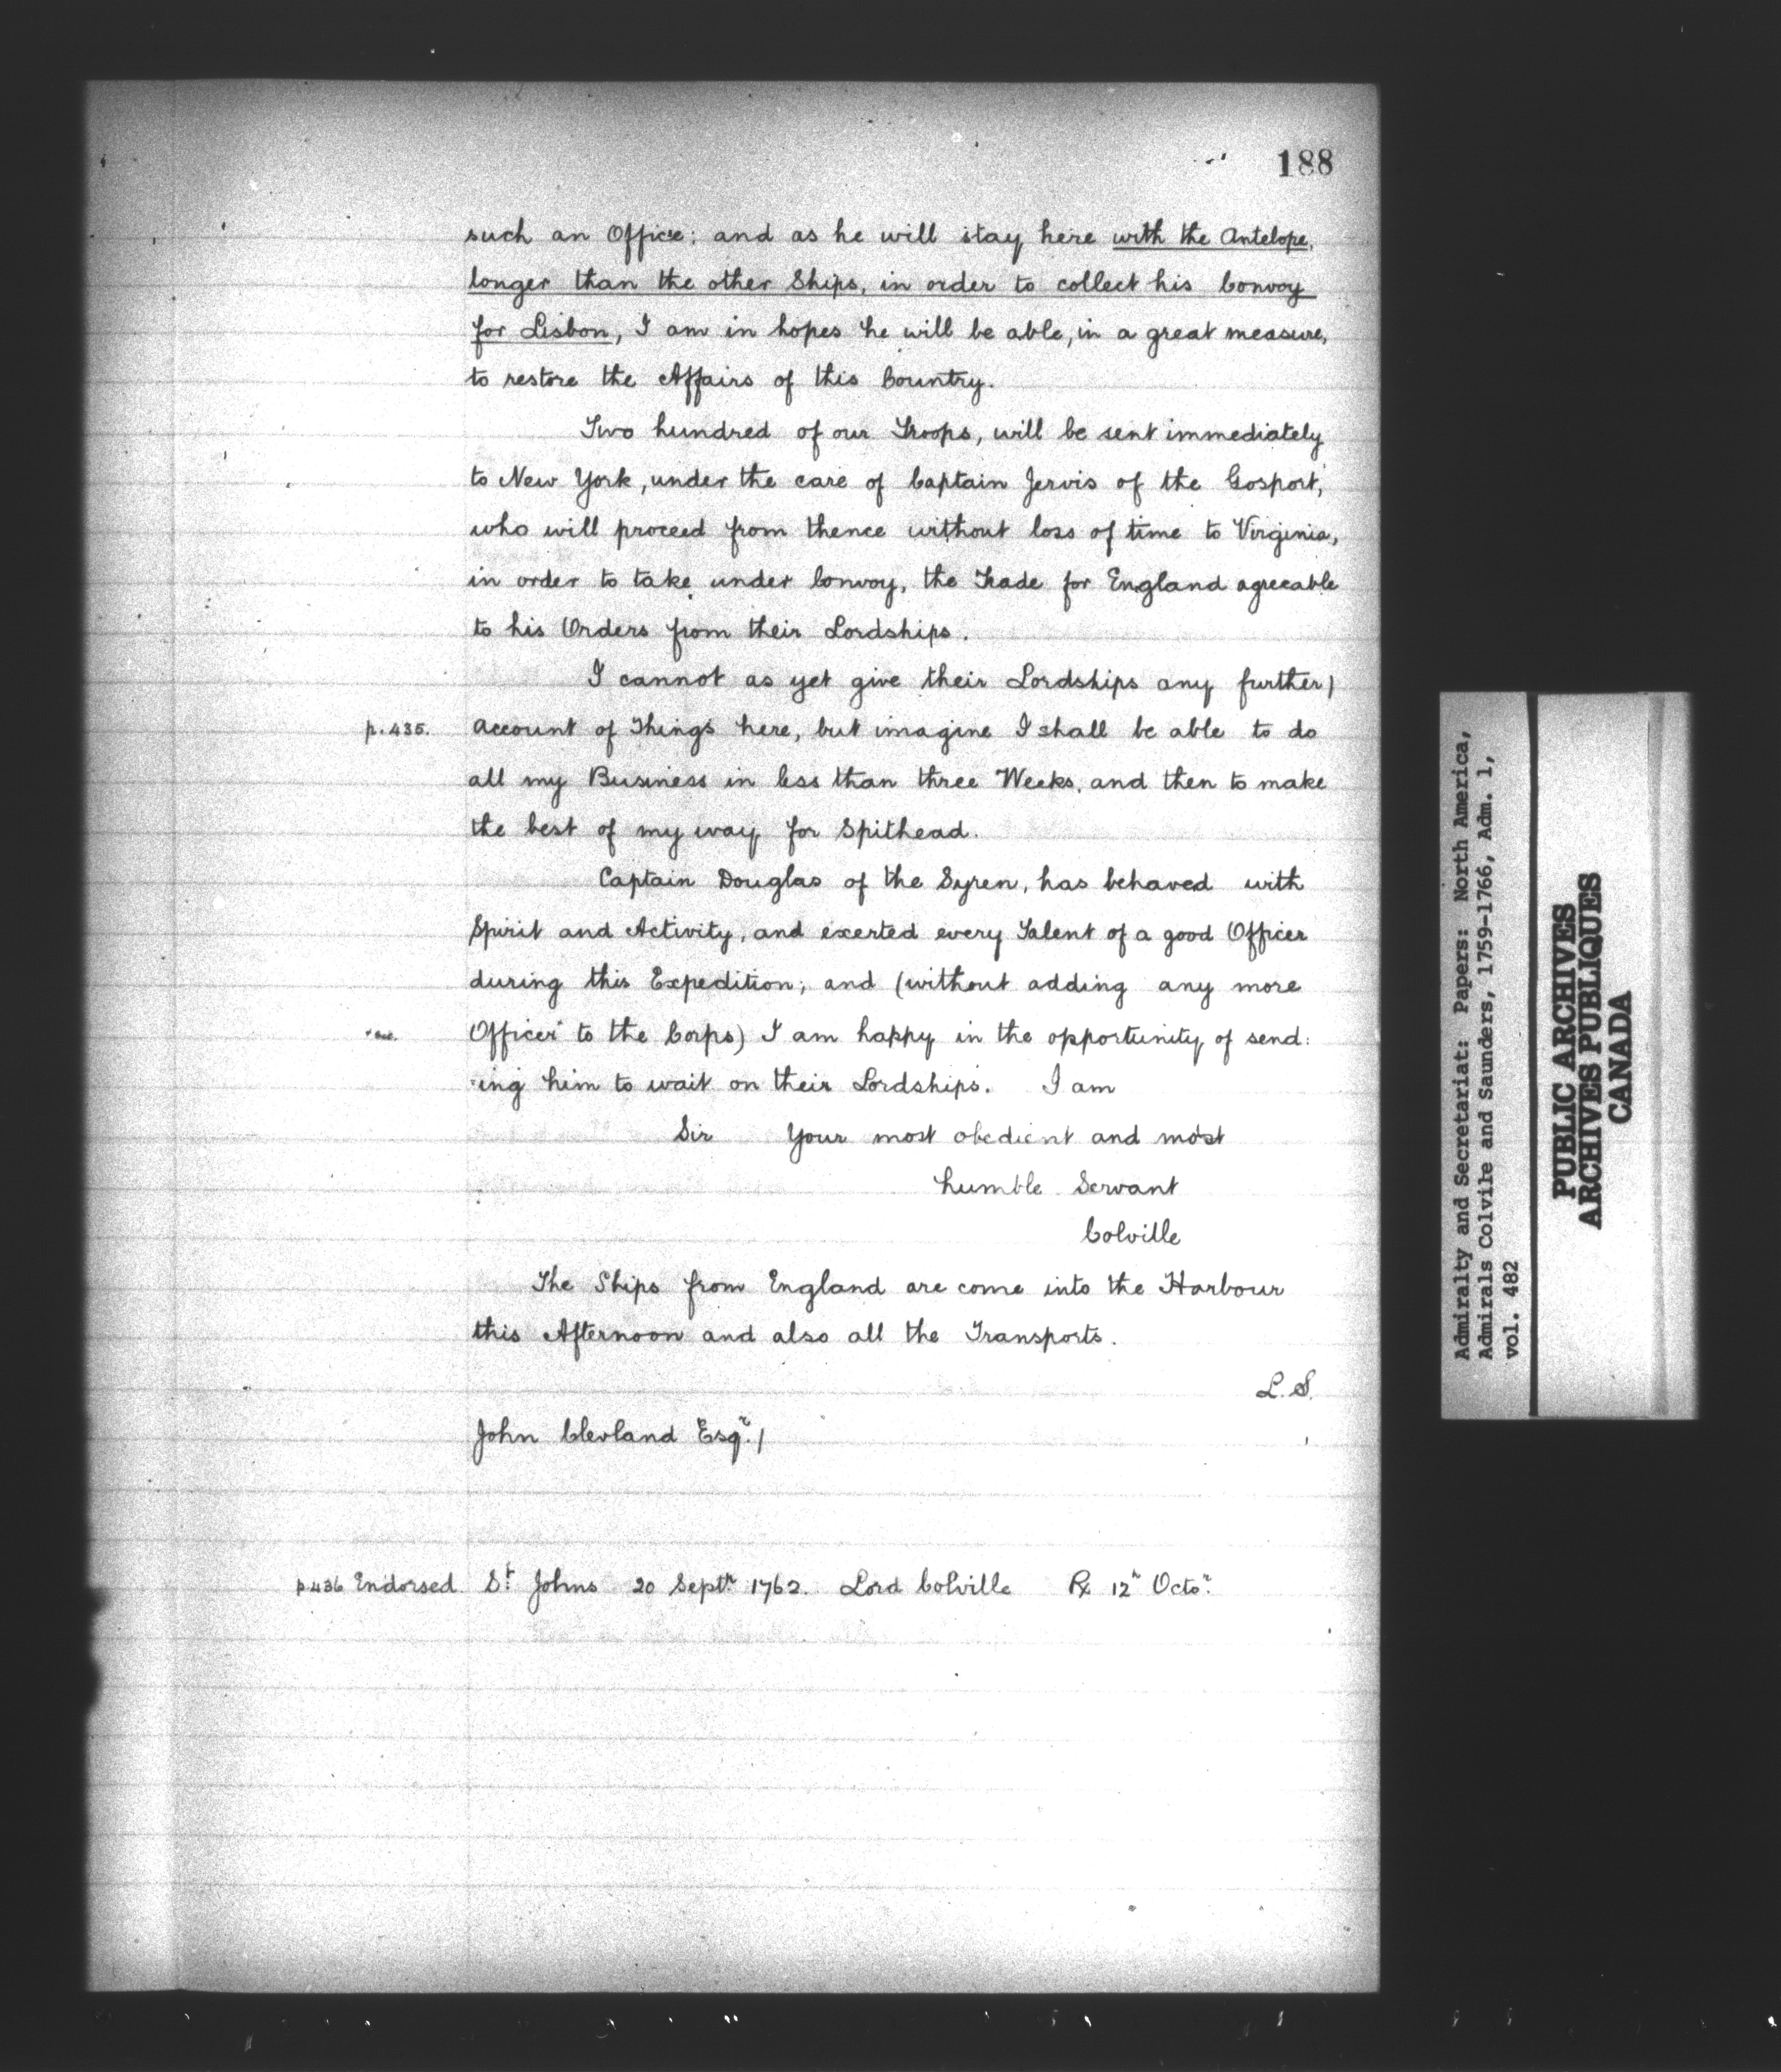 188
such an Office; and as he will stay here with the Antelope,
longer than the other Ships, in order to collect his Convoy
for Lisbon, I am in hopes he will be able, in a great measure,
to restore the Affairs of this Country.
Two hundred of our Troops, will be sent immediately
to New York, under the care of Captain Jervis of the Gosport,
who will proceed from thence without loss of time to Virginia,
in order to take under Convoy, the Trade for England agreeable
to his Orders from their Lordships.
I cannot as yet give their Lordships any further/
p. 435. Account of Things here, but imagine I shall be able to do
all my Business in less than three Weeks, and then to make
the best of my way for Spithead.
Captain Douglas of the Syren, has behaved with
Spirit and Activity, and exerted every Talent of a good Officer
during this Expedition; and (without adding any more
Officer to the Corps) I am happy in the opportunity of send:
:ing him to wait on their Lordships. I am
Sir Your most obedient and most
humble Servant
Colville
The Ships from England are come into the Harbour
this Afternoon and also all the Transports.
L. S.
John Clevland Esqr./
p 436 Endorsed St. Johns 20 Septr. 1762. Lord Colville Rx 12th Octor.
Admiralty and Secretariat: Papers: North America,
Admirals Colvile and Saunders, 1759-1766, Adm. 1,
vol. 482
PUBLIC ARCHIVES
ARCHIVES PUBLIQUES
CANADA